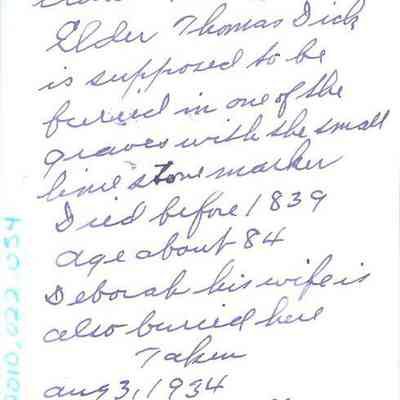 Elder Thomas Dick
is supposed to be
buried in one of the
graves with the small
lime stone marker
Died before 1839
age about 84
Deborah his wife is
also buried here
Taken
aug 3, 1934
2010.022.034